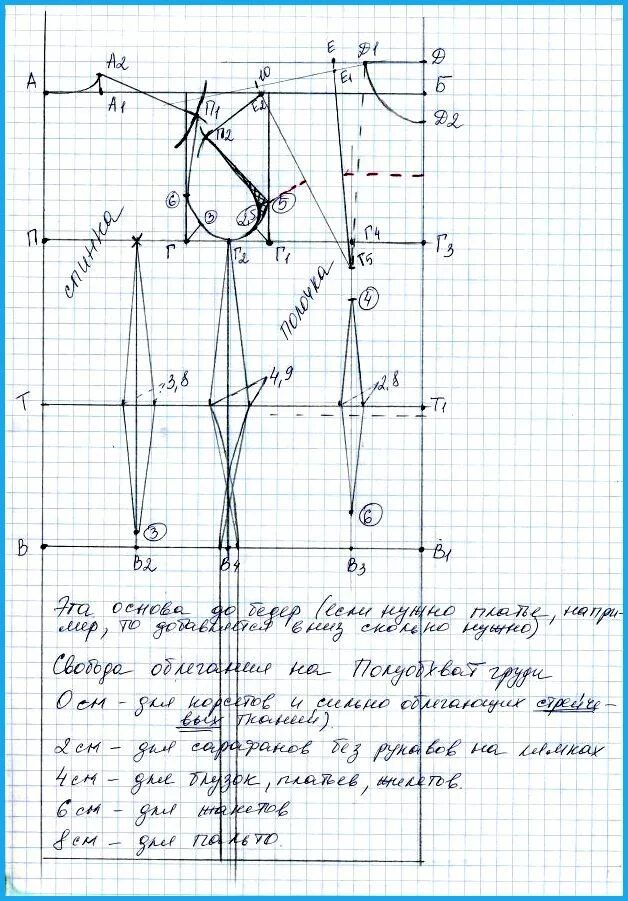 Е Д1 Д
А2 10 Е1
А А1 Е2 Б
П1
П2 Д2
6
3 2,5 5
П Г Г2 Г1 Г4 Г3
спинка Г5
полочка
4
3,8 4,9 2,8
Т Т1
3 6
В В2 В4 В3 В1
Эта основа до бедер (если нужно платье, напри-
мер, то добавляется вниз сколько нужно)
Свобода облегания на Полуобхват груди
0 см - для корсетов и сильно облегающих стрейче-
вых тканей).
2 см - для сарафанов без рукавов на лямках
4 см - для блузок, платьев, жилетов.
6 см - для жакетов
8 см - для пальто.